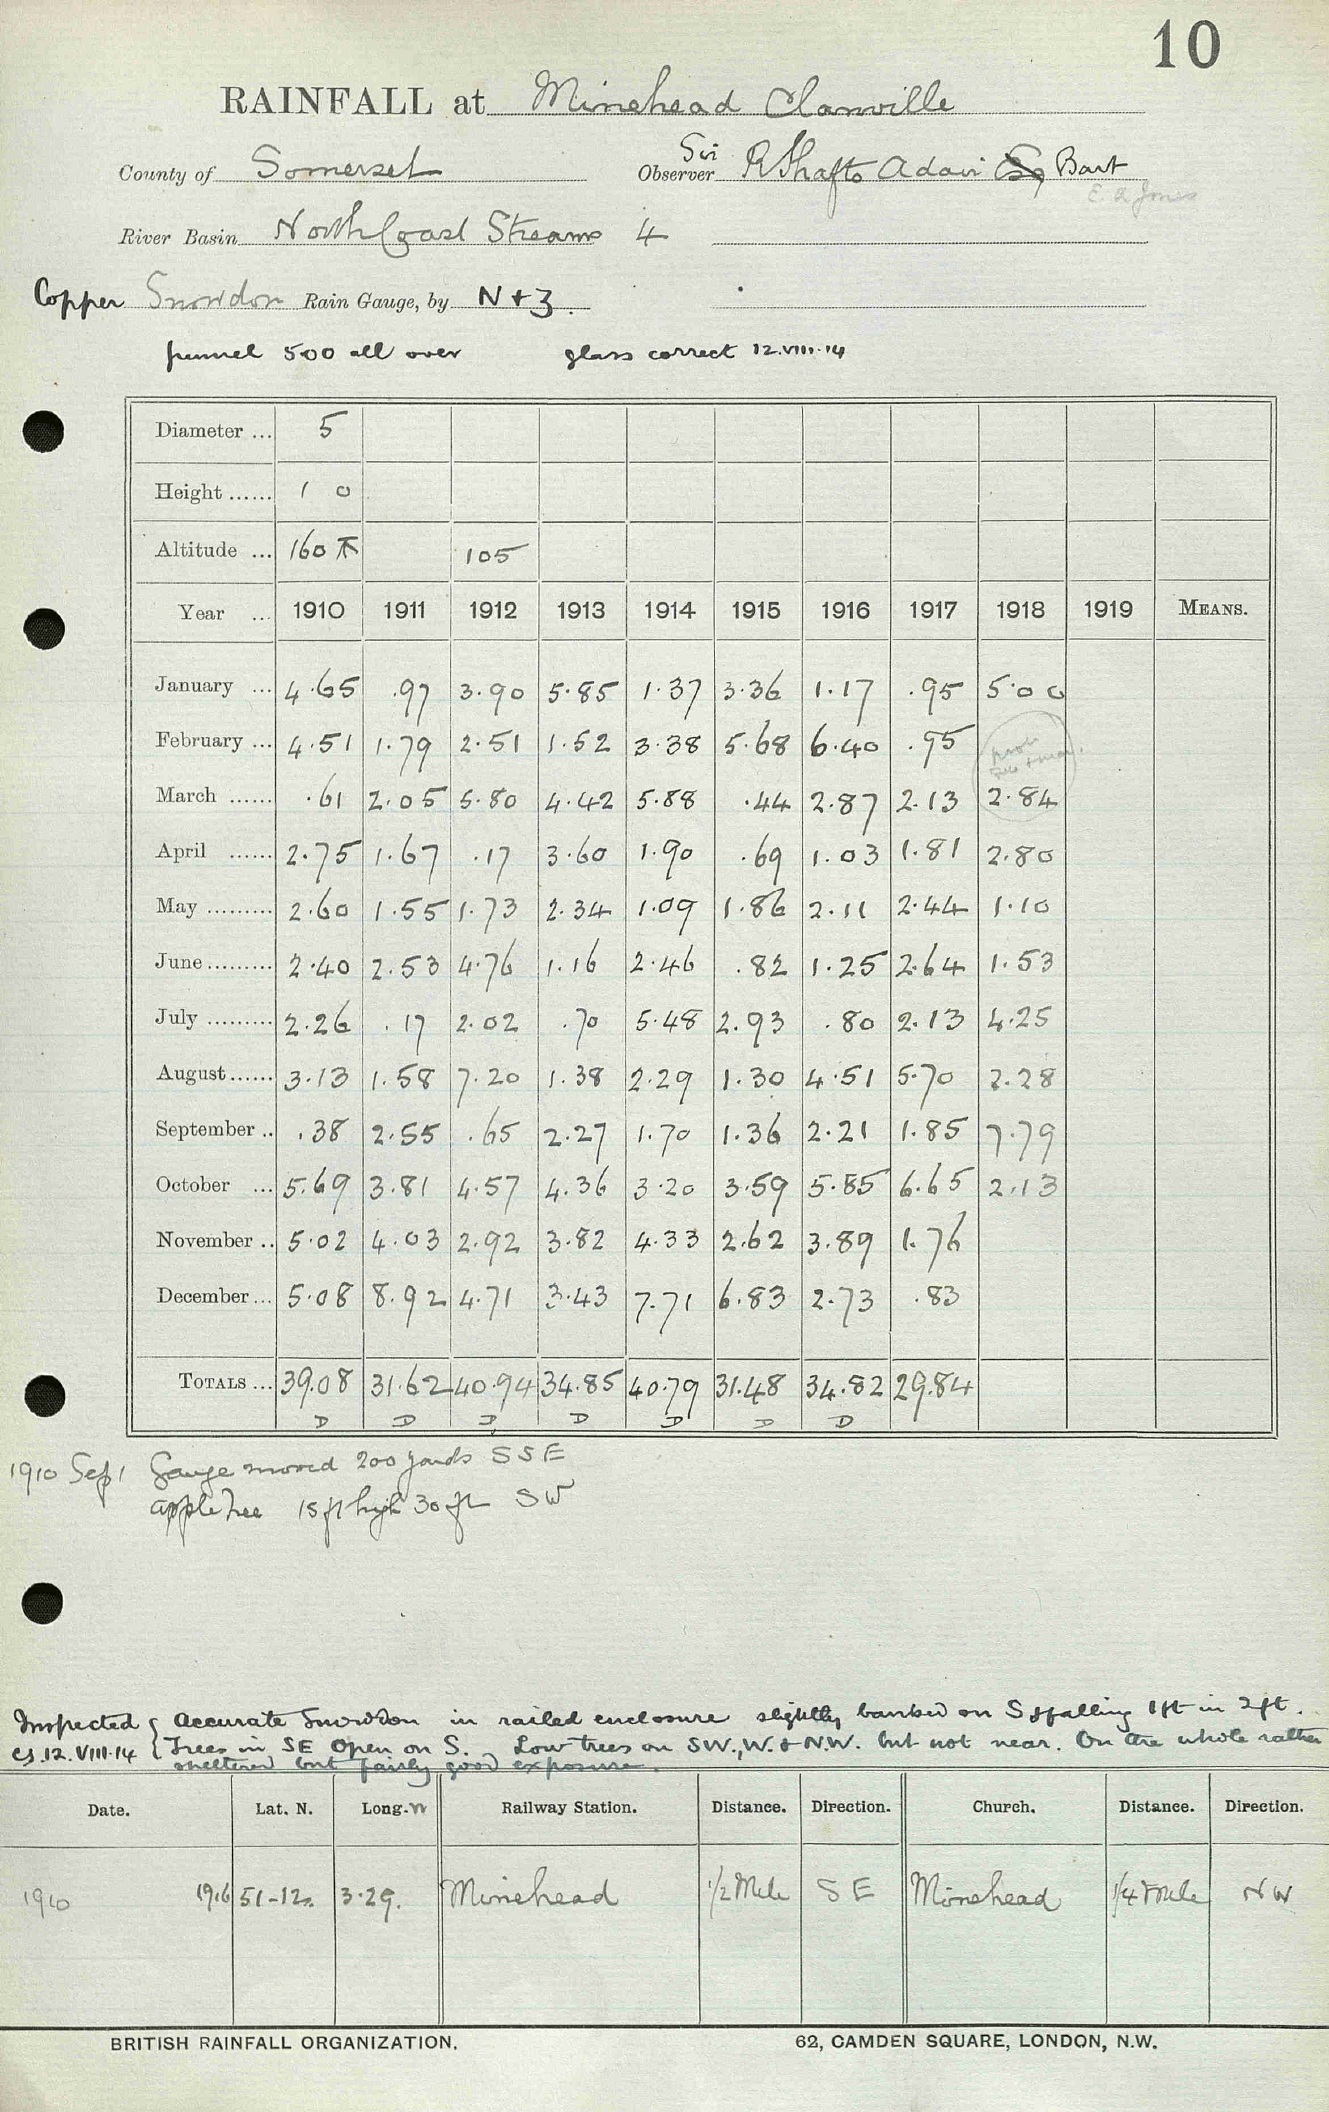 10
RAINFALL at Minehead Clanville
County of Somerset Observer Sir R Shafto Adair Bart
E A Jones
River Basin North Coast Streams 4
Copper Snowdon Rain Gauge, by N + Z.
funnel 500 all over glass correct 12.VIII.14
Diameter ... 5
Height ...... 1 0
Altitude ... 160 105
Year ... 1910 1911 1912 1913 1914 1915 1916 1917 1918 1919 MEANS.
January ... 4.65 .97 3.90 5.85 1.37 3.36 1.17 .95 5.00
February ... 4.51 1.79 2.51 1.52 3.38 5.68 6.40 .95
March ...... .61 2.05 5.80 4.42 5.88 .44 2.87 2.13 2.84
April ...... 2.75 1.67 .17 3.60 1.90 .69 1.03 1.81 2.80
May ......... 2.60 1.55 1.73 2.34 1.09 1.86 2.11 2.44 1.10
June ......... 2.40 2.53 4.76 1.16 2.46 .82 1.25 2.64 1.53
July ......... 2.26 .17 2.02 .70 5.48 2.93 .80 2.13 4.25
August ...... 3.13 1.58 7.20 1.38 2.29 1.30 4.51 5.70 2.28
September .. .38 2.55 .65 2.27 1.70 1.36 2.21 1.85 7.79
October ... 5.69 3.81 4.57 4.36 3.20 3.59 5.85 6.65 2.13
November .. 5.02 4.03 2.92 3.82 4.33 2.62 3.89 1.76
December ... 5.08 8.92 4.71 3.43 7.71 6.83 2.73 .83
TOTALS ... 39.08 31.62 40.94 34.85 40.79 31.48 34.82 29.84
D D D D D D D
1910 Sep 1 Gauge moved 200 yards SSE
apple tree 15 ft high 30 ft SW
Inspected { Accurate Snowdon in railed enclosure slightly banked on S falling 1ft in 2ft.
CS.12.VIII.14 { Trees in SE Open on S. Low trees on SW., W. & N.W. but not near. On the whole rather
sheltered but fairly good exposure.
Date. Lat. N. Long. W Railway Station. Distance. Direction. Church. Distance. Direction.
1910 1916 51-12. 3.29. Minehead 1/2 Mile SE Minehead 1/4 Mile NW
BRITISH RAINFALL ORGANIZATION. 62, CAMDEN SQUARE, LONDON, N.W.